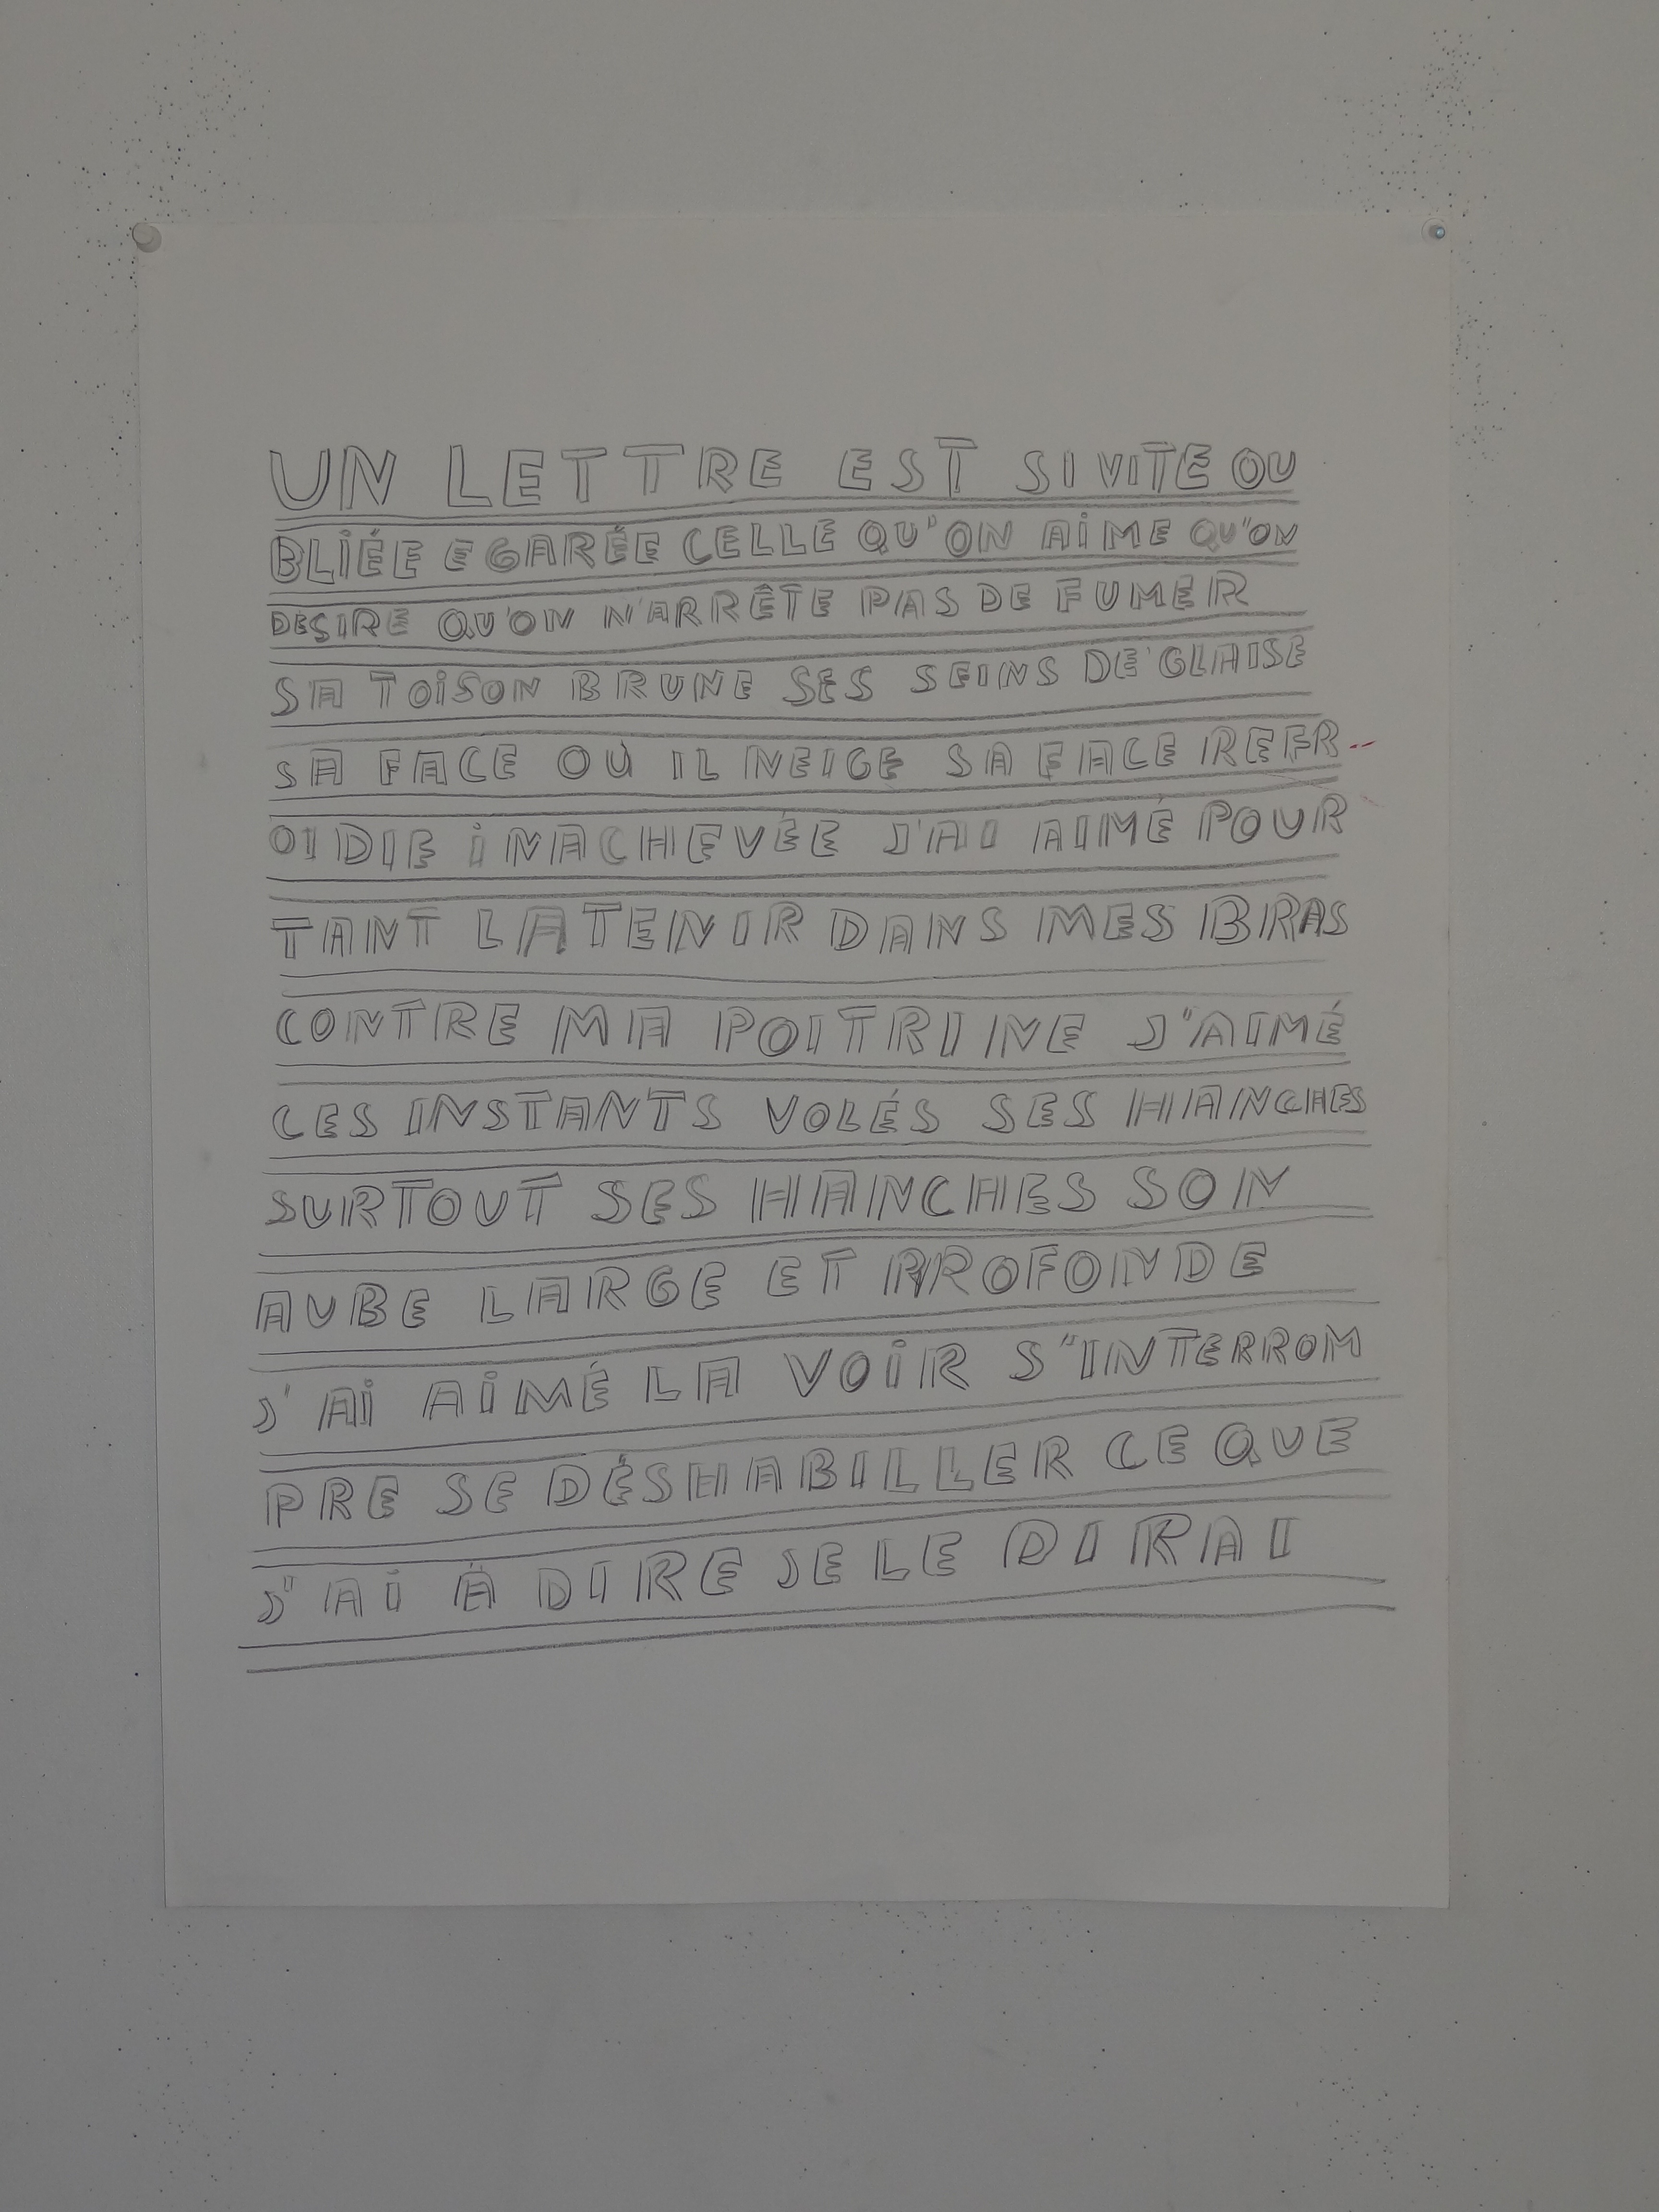 UN LETTRE EST SI VITE OU
BLIÉE EGARÉE CELLE QU'ON AIME QU'ON
DESIRE QU'ON N'ARRÊTE PAS DE FUMER
SA TOISON BRUNE SES SEINS DE GLAISE
SA FACE OÙ IL NEIGE SA FACE REFR--
OIDIE INACHEVÉE J'AI AIMÉ POUR
TANT LA TENIR DANS MES BRAS
CONTRE MA POITRINE J'AIMÉ
CES INSTANTS VOLÉS SES HANCHES
SURTOUT SES HANCHES SON
AUBE LARGE ET PROFONDE
J'AI AIMÉ LA VOIR S'INTERROM
PRE SE DÉSHABILLER CE QUE
J'AI À DIRE JE LE DIRAI